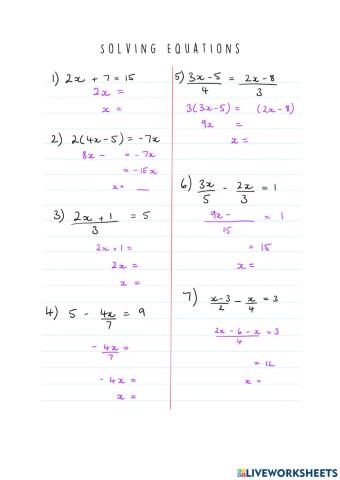 SOLVING EQUATIONS
1) 2x + 7 = 15
2x =
x =
2) 2(4x-5) = -7x
8x - = -7x
= -15x
x = __
3) (2x + 1)/3 = 5
2x+1 =
2x =
x =
4) 5 - 4x/7 = 9
- 4x/7 =
- 4x =
x =
5) (3x-5)/4 = (2x-8)/3
3(3x-5) = (2x-8)
9x =
x =
6) 3x/5 - 2x/3 = 1
(9x - )/15 = 1
= 15
x =
7) (x-3)/2 - x/4 = 3
(2x - 6 - x)/4 = 3
= 12
x =
LIVEWORKSHEETS